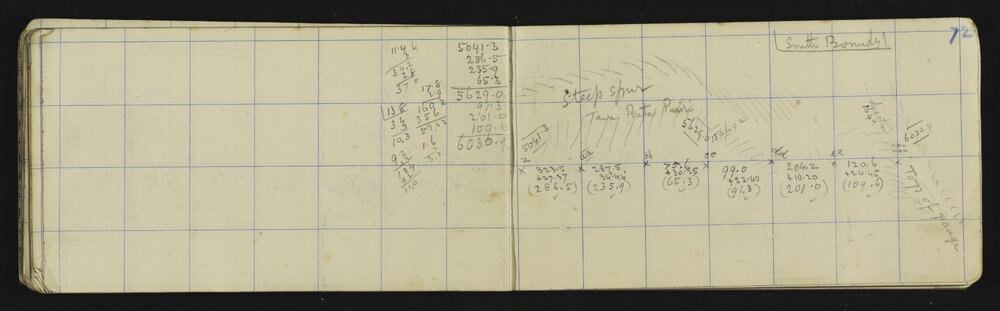 11.4 4
34.2
2.8
37.0
17.8
13.8
160 2
34
3
356
10.3
57.52
1.6
3.2
9.2
184
5041.3
286.5
235.9
65.3
5629.0
91.3
201.0
109.6
6030.9
South Boundy
72
Steep spur
Tawa Rata
5041.3
5629.0
6030.9
z
aa
bb
cc
dd
ee
ff
x 323.5
+27.37
(286.5)
x 287.5
34.44
(235.9)
x 75.6
+30.25
(65.3)
x 99.0
+22.40
(91.3)
x 204.2
+10.20
(201.0)
x 120.6
+24.45
(109.6)
x
Top of range